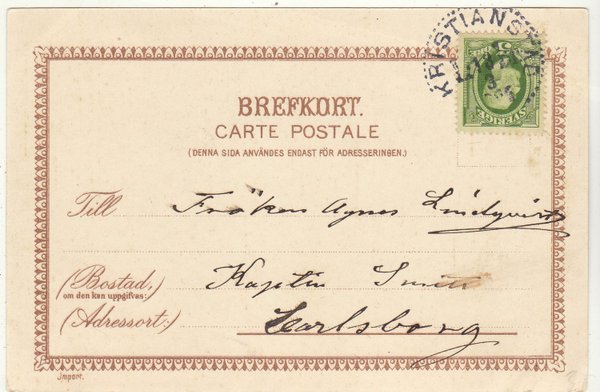 KRISTIANSTAD
5
SVERIGE
BREFKORT.
CARTE POSTALE
(DENNA SIDA ANVÄNDES ENDAST FÖR ADRESSERINGEN.)
Till Fröken Agnes Lindqvist
(Bostad,
om den kan uppgifvas:) Kaptin Smitt
(Adressort:) Karlsborg
Import.